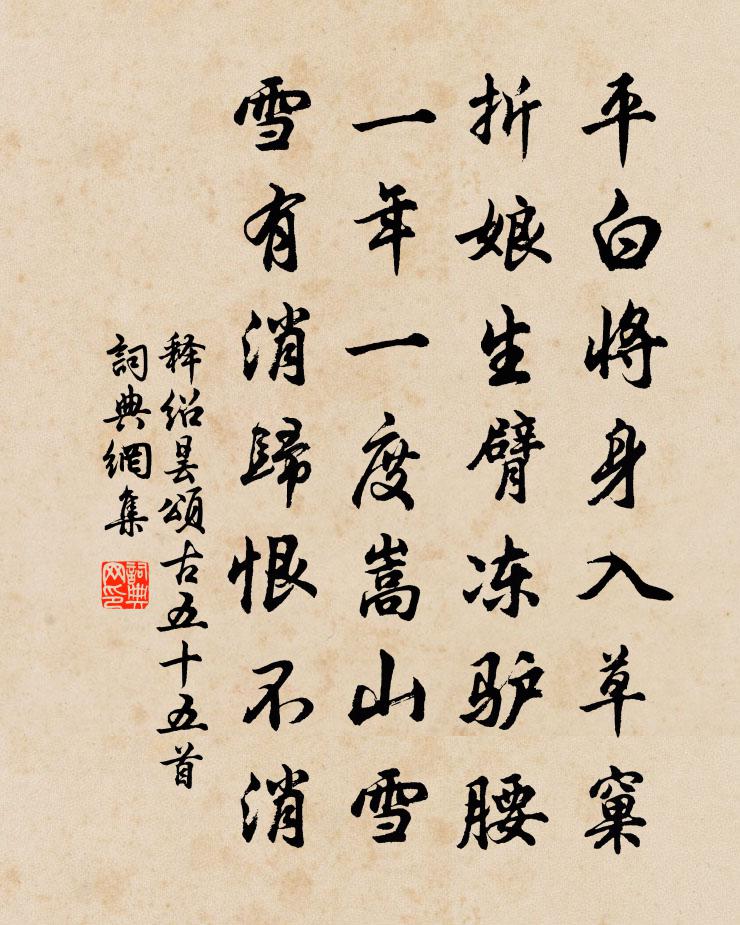 平白将身入草窠
折娘生臂冻驴腰
一年一度嵩山雪
雪有消歸恨不消
释绍昙頌古五十五首
詞典網集
詞典网印